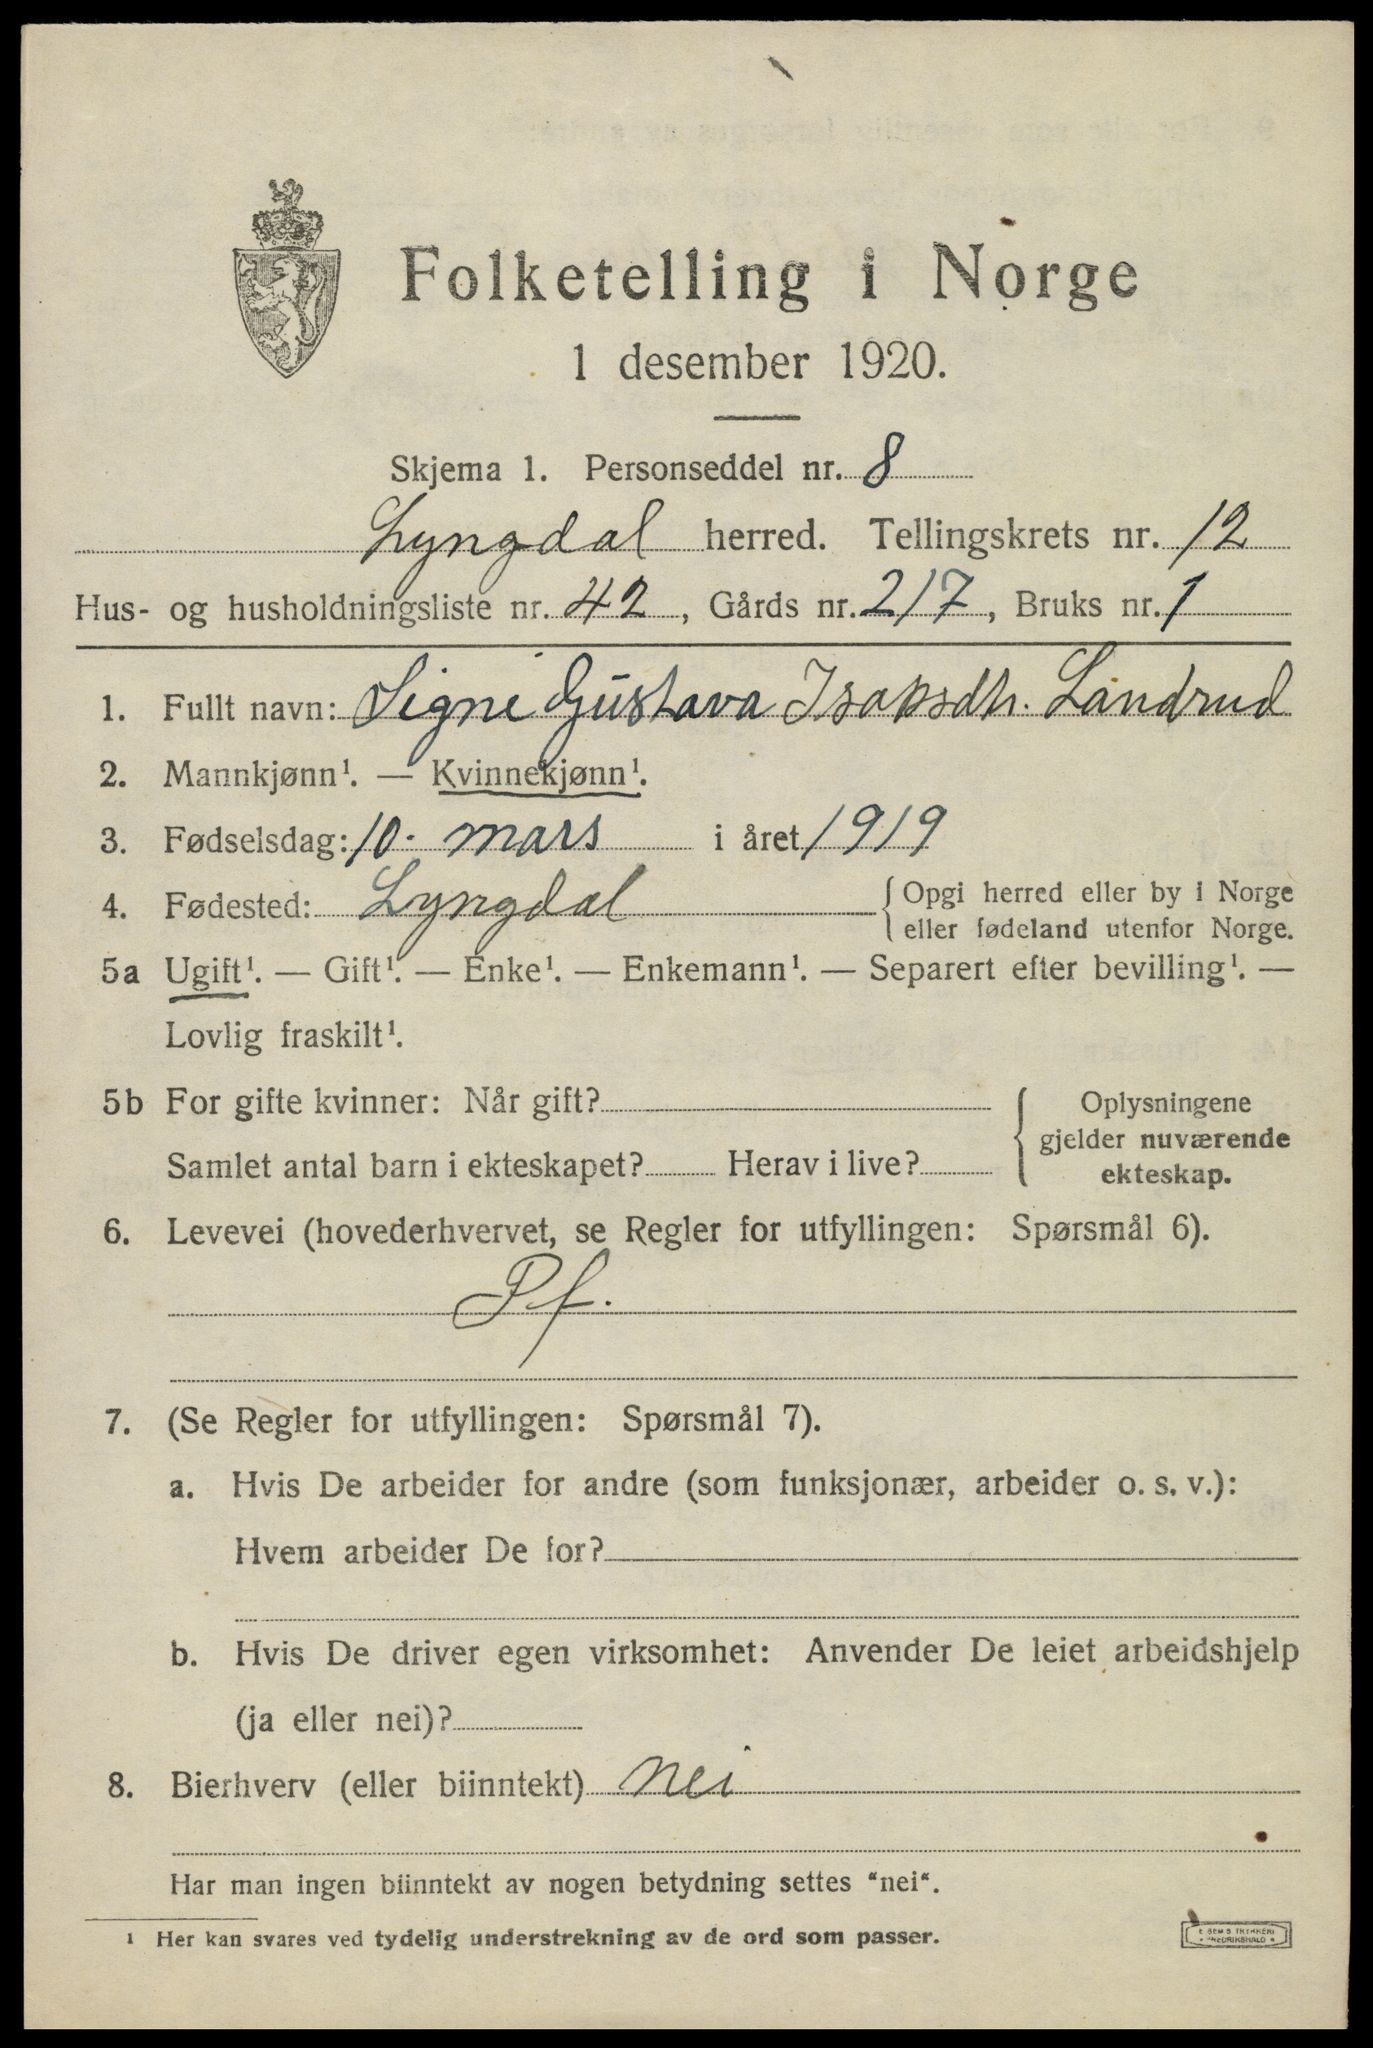 Folketelling i Norge
1 desember 1920.
Skjema 1. Personseddel nr. 8
Lyngdal herred. Tellingskrets nr. 12
Hus- og husholdningsliste nr. 42, Gårds nr. 217, Bruks nr. 1
1. Fullt navn: Signe Gustava Isaksdtr. Landrud
2. Mannkjønn¹. — Kvinnekjønn¹.
3. Fødselsdag: 10. mars i året 1919
4. Fødested: Lyngdal { Opgi herred eller by i Norge
eller fødeland utenfor Norge.
5a Ugift¹. — Gift¹. — Enke¹. — Enkemann¹. — Separert efter bevilling¹. —
Lovlig fraskilt¹.
5b For gifte kvinner: Når gift? { Oplysningene
gjelder nuværende
Samlet antal barn i ekteskapet? Herav i live? ekteskap.
6. Levevei (hovederhvervet, se Regler for utfyllingen: Spørsmål 6).
Pf.
7. (Se Regler for utfyllingen: Spørsmål 7).
a. Hvis De arbeider for andre (som funksjonær, arbeider o. s. v.):
Hvem arbeider De for?
b. Hvis De driver egen virksomhet: Anvender De leiet arbeidshjelp
(ja eller nei)?
8. Bierhverv (eller biinntekt) nei
Har man ingen biinntekt av nogen betydning settes "nei".
1 Her kan svares ved tydelig understrekning av de ord som passer.